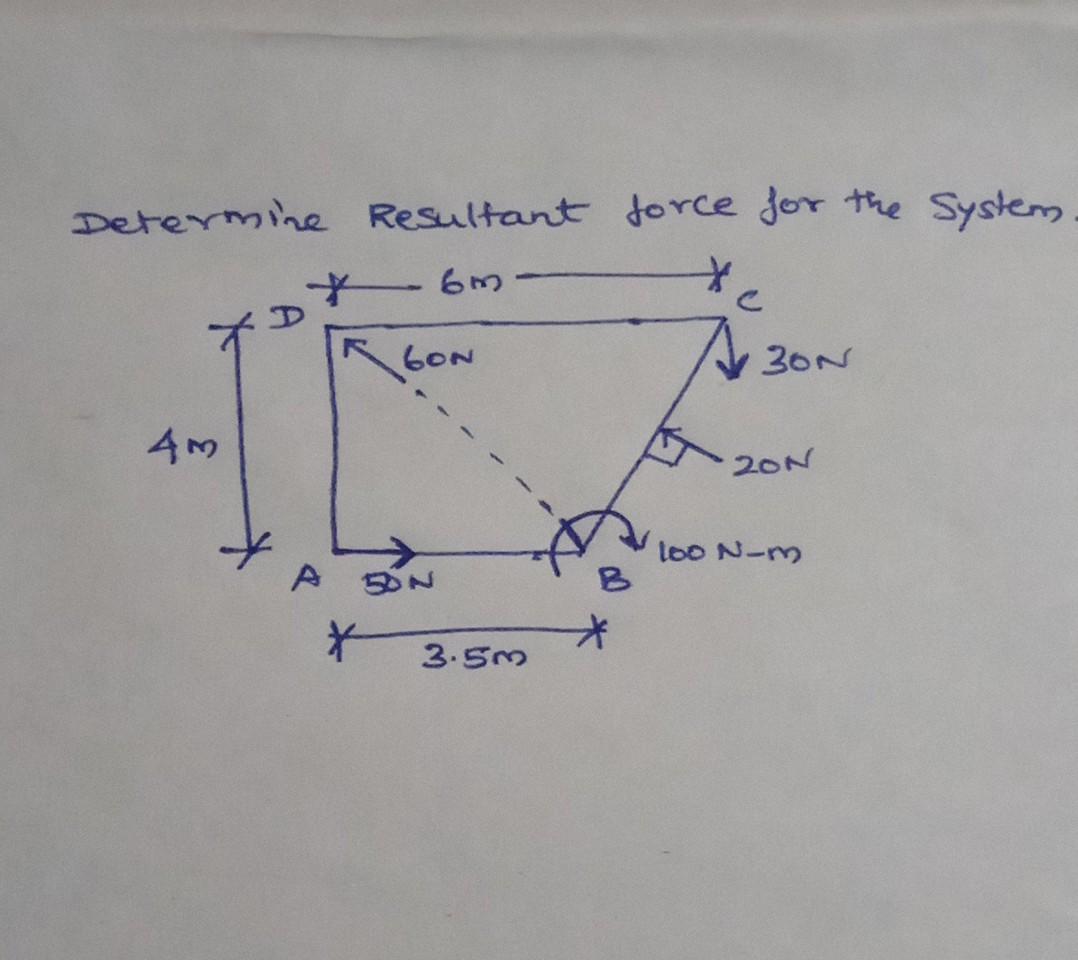 Determine Resultant force for the System.
6m
D
C
60N
30N
4m
20N
100 N-m
A
50N
B
3.5m